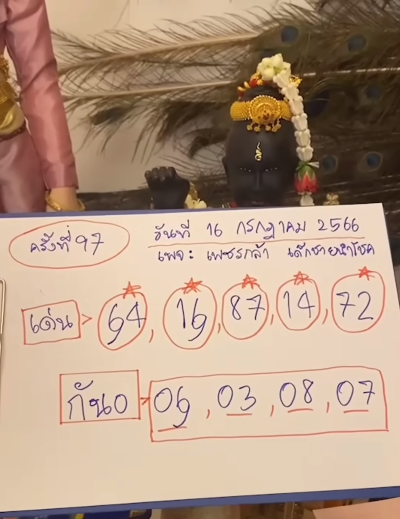 ครั้งที่ 97
วันที่ 16 กรกฎาคม 2566
เพจ: เพชรกล้า เด็กชายนำโชค
เด่น > 64, 16, 87, 14, 72
กัน 0 06, 03, 08, 07